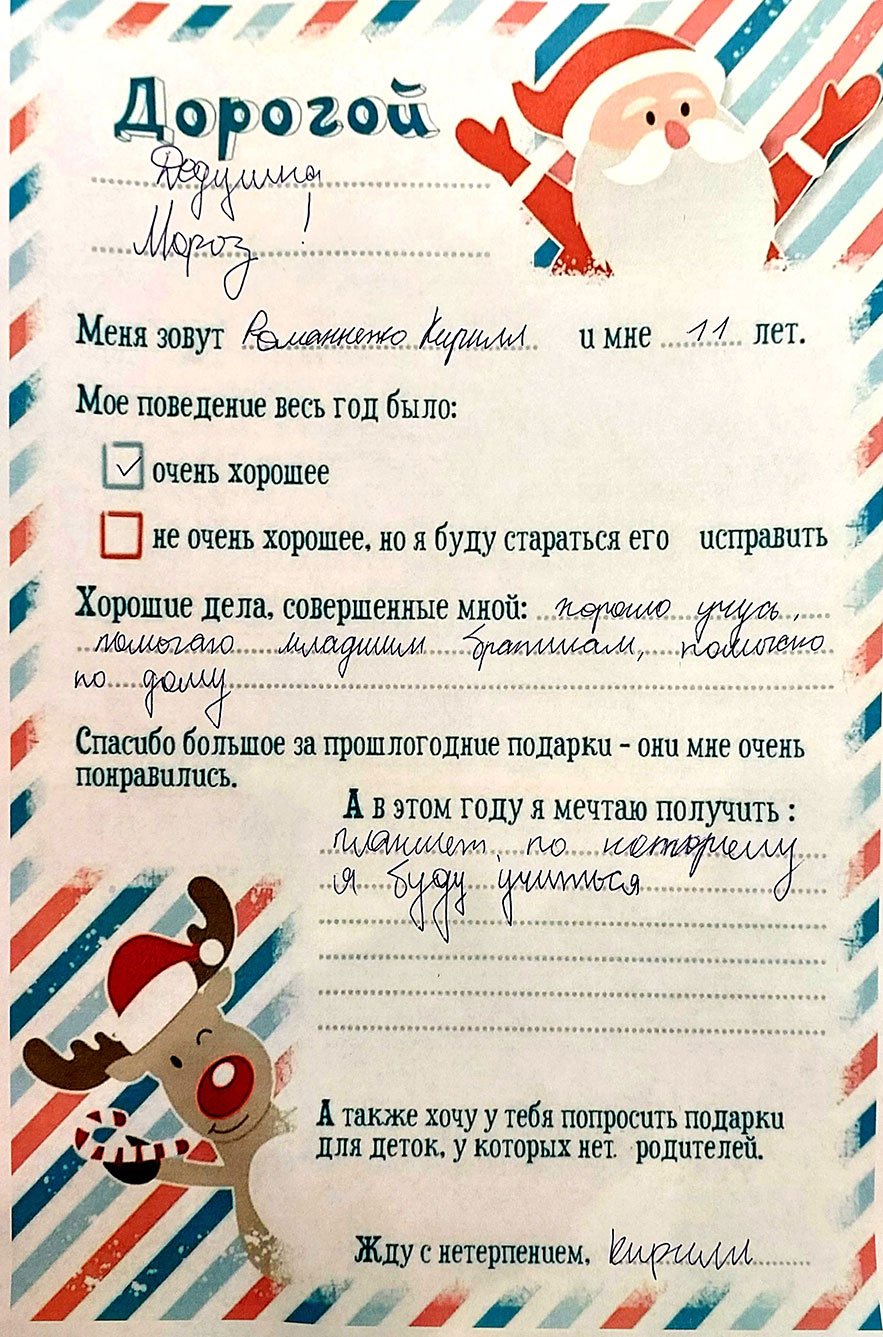 Дорогой
Дедушка
Мороз !
Меня зовут Романненко Кирилл и мне 11 лет.
Мое поведение весь год было:
очень хорошее
не очень хорошее, но я буду стараться его исправить
Хорошие дела, совершенные мной: хорошо учусь,
помогаю младшим братикам, помогаю
по дому
Спасибо большое за прошлогодние подарки - они мне очень
понравились.
А в этом году я мечтаю получить :
планшет, по которому
я буду учиться
А также хочу у тебя попросить подарки
для деток, у которых нет родителей.
Жду с нетерпением, Кирилл